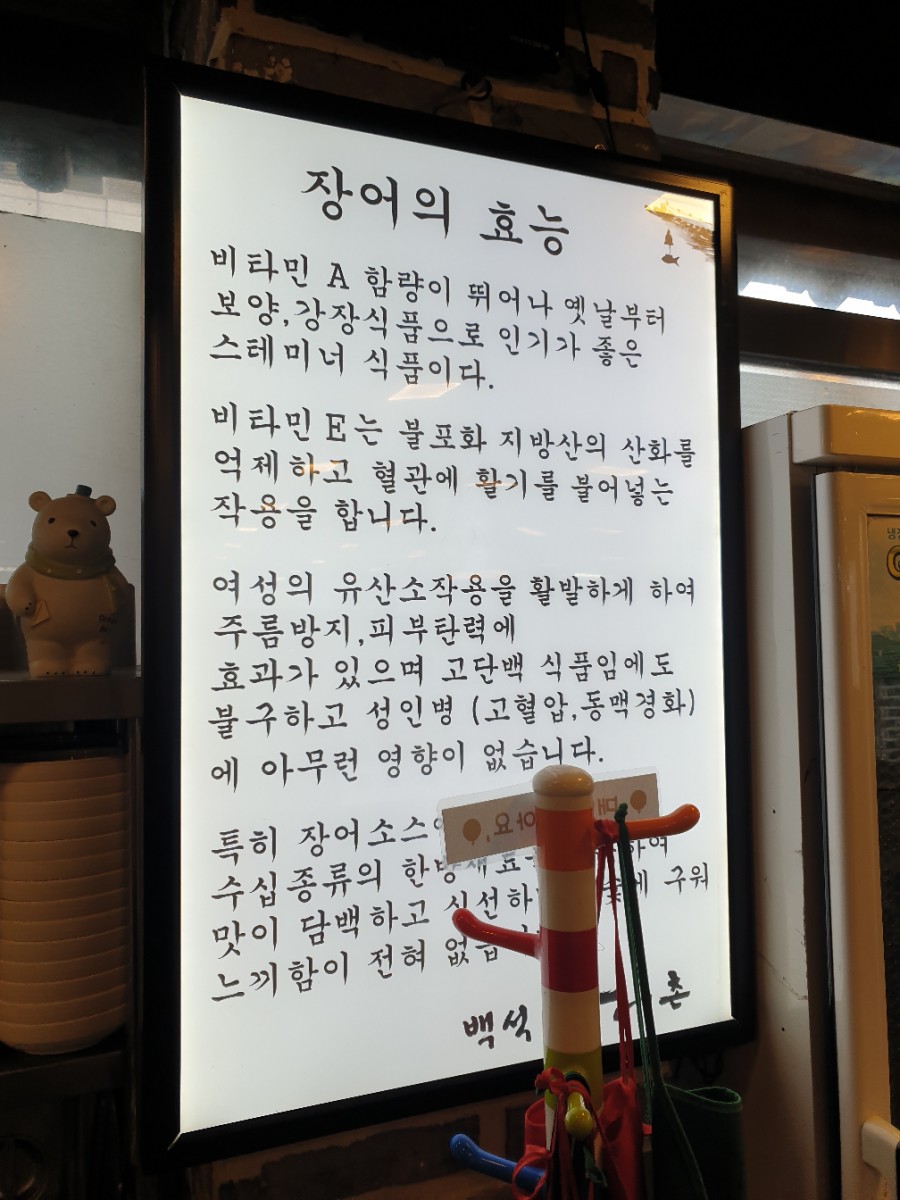 장어의 효능
비타민 A 함량이 뛰어나 옛날부터
보양,강장식품으로 인기가 좋은
스테미너 식품이다.
비타민 E는 불포화 지방산의 산화를
억제하고 혈관에 활기를 불어넣는
작용을 합니다.
여성의 유산소작용을 활발하게 하여
주름방지,피부탄력에
효과가 있으며 고단백 식품임에도
불구하고 성인병 (고혈압,동맥경화)
에 아무런 영향이 없습니다.
특히 장어소스
수십종류의 구워
맛이 담백하고
느끼함이 전혀
백석 촌